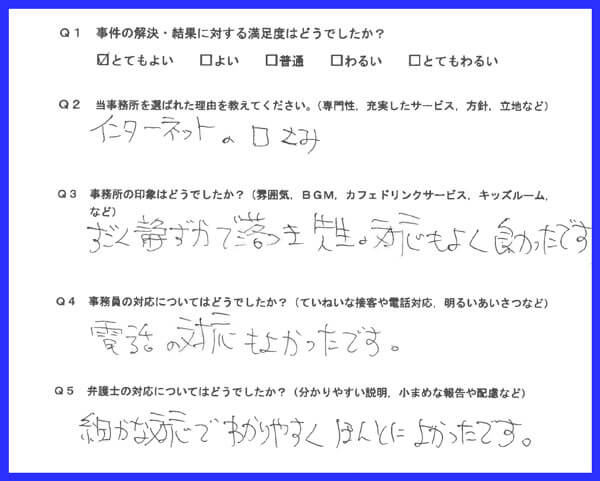 Q1 事件の解決・結果に対する満足度はどうでしたか？
☑とてもよい □よい □普通 □わるい □とてもわるい
Q2 当事務所を選ばれた理由を教えてください。（専門性，充実したサービス，方針，立地など）
インターネットの口こみ
Q3 事務所の印象はどうでしたか？（雰囲気，BGM，カフェドリンクサービス，キッズルーム，
など）
すごく静ずかで落つき先生の対応もよく良かったです
Q4 事務員の対応についてはどうでしたか？（ていねいな接客や電話対応，明るいあいさつなど）
電話の対応もよかったです。
Q5 弁護士の対応についてはどうでしたか？（分かりやすい説明，小まめな報告や配慮など）
細かな対応でわかりやすくほんとによかったです。